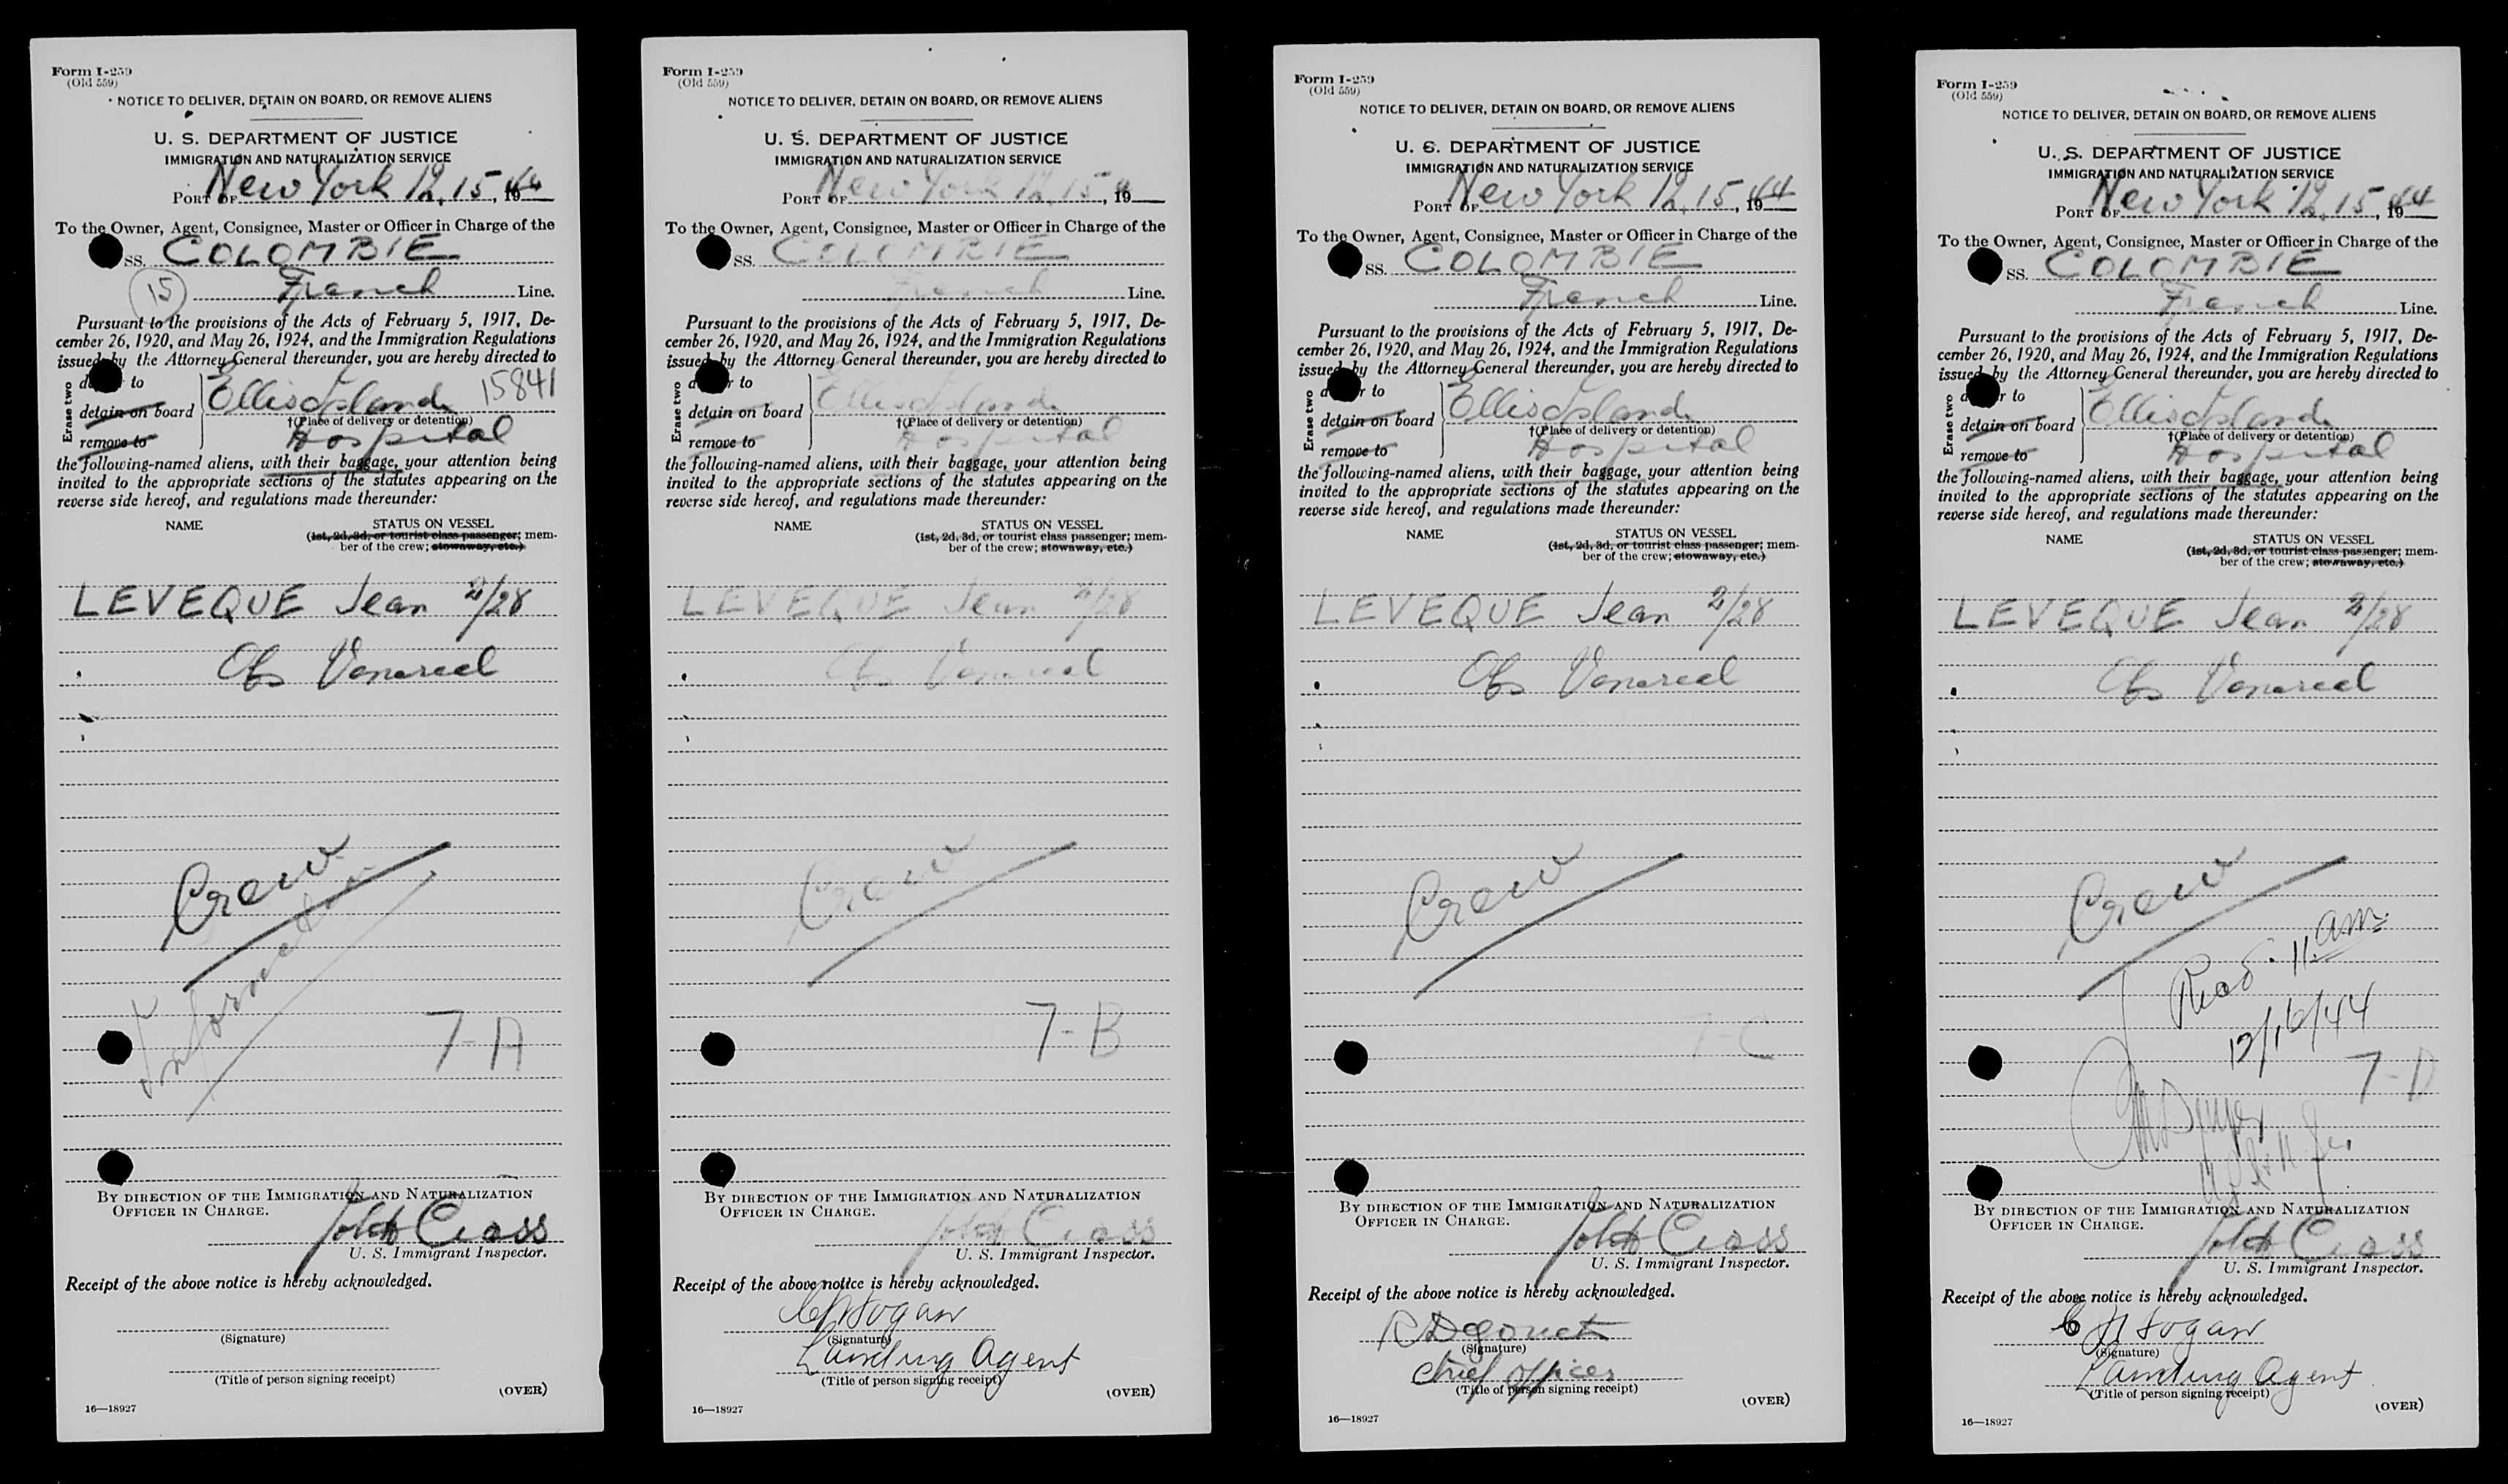 Form I-259
(Old 559)
NOTICE TO DELIVER, DETAIN ON BOARD, OR REMOVE ALIENS
U. S. DEPARTMENT OF JUSTICE
IMMIGRATION AND NATURALIZATION SERVICE
PORT OF New York 12, 15, 1944
To the Owner, Agent, Consignee, Master or Officer in Charge of the
SS. COLOMBIE
(15) French Line.
Pursuant to the provisions of the Acts of February 5, 1917, De-
cember 26, 1920, and May 26, 1924, and the Immigration Regulations
issued by the Attorney General thereunder, you are hereby directed to
Erase two
to
detain on board
remove to
Ellis Island 15841
†(Place of delivery or detention)
Hospital
the following-named aliens, with their baggage, your attention being
invited to the appropriate sections of the statutes appearing on the
reverse side hereof, and regulations made thereunder:
NAME STATUS ON VESSEL
(1st, 2d, 3d, or tourist class passenger; mem-
ber of the crew; stowaway, etc.)
LEVEQUE Jean 2/28
Obs Venereal
Crew
7-A
BY DIRECTION OF THE IMMIGRATION AND NATURALIZATION
OFFICER IN CHARGE.
Cross
U. S. Immigrant Inspector.
Receipt of the above notice is hereby acknowledged.
(Signature)
(Title of person signing receipt)
(OVER)
16—18927
Form I-259
(Old 559)
NOTICE TO DELIVER, DETAIN ON BOARD, OR REMOVE ALIENS
U. S. DEPARTMENT OF JUSTICE
IMMIGRATION AND NATURALIZATION SERVICE
PORT OF New York 12, 15, 19
To the Owner, Agent, Consignee, Master or Officer in Charge of the
SS. COLOMBIE
French Line.
Pursuant to the provisions of the Acts of February 5, 1917, De-
cember 26, 1920, and May 26, 1924, and the Immigration Regulations
issued by the Attorney General thereunder, you are hereby directed to
Erase two
to
detain on board
remove to
Ellis Island
†(Place of delivery or detention)
Hospital
the following-named aliens, with their baggage, your attention being
invited to the appropriate sections of the statutes appearing on the
reverse side hereof, and regulations made thereunder:
NAME STATUS ON VESSEL
(1st, 2d, 3d, or tourist class passenger; mem-
ber of the crew; stowaway, etc.)
LEVEQUE Jean 2/28
Obs Venereal
Crew
7-B
BY DIRECTION OF THE IMMIGRATION AND NATURALIZATION
OFFICER IN CHARGE.
Cross
U. S. Immigrant Inspector.
Receipt of the above notice is hereby acknowledged.
(Signature)
Landing Agent
(Title of person signing receipt)
(OVER)
16—18927
Form I-259
(Old 559)
NOTICE TO DELIVER, DETAIN ON BOARD, OR REMOVE ALIENS
U. S. DEPARTMENT OF JUSTICE
IMMIGRATION AND NATURALIZATION SERVICE
PORT OF New York 12, 15, 1944
To the Owner, Agent, Consignee, Master or Officer in Charge of the
SS. COLOMBIE
French Line.
Pursuant to the provisions of the Acts of February 5, 1917, De-
cember 26, 1920, and May 26, 1924, and the Immigration Regulations
issued by the Attorney General thereunder, you are hereby directed to
Erase two
to
detain on board
remove to
Ellis Island
†(Place of delivery or detention)
Hospital
the following-named aliens, with their baggage, your attention being
invited to the appropriate sections of the statutes appearing on the
reverse side hereof, and regulations made thereunder:
NAME STATUS ON VESSEL
(1st, 2d, 3d, or tourist class passenger; mem-
ber of the crew; stowaway, etc.)
LEVEQUE Jean 2/28
Obs Venereal
Crew
7-C
BY DIRECTION OF THE IMMIGRATION AND NATURALIZATION
OFFICER IN CHARGE.
Cross
U. S. Immigrant Inspector.
Receipt of the above notice is hereby acknowledged.
(Signature)
Chief officer
(Title of person signing receipt)
(OVER)
16—18927
Form I-259
(Old 559)
NOTICE TO DELIVER, DETAIN ON BOARD, OR REMOVE ALIENS
U. S. DEPARTMENT OF JUSTICE
IMMIGRATION AND NATURALIZATION SERVICE
PORT OF New York 12, 15, 1944
To the Owner, Agent, Consignee, Master or Officer in Charge of the
SS. COLOMBIE
French Line.
Pursuant to the provisions of the Acts of February 5, 1917, De-
cember 26, 1920, and May 26, 1924, and the Immigration Regulations
issued by the Attorney General thereunder, you are hereby directed to
Erase two
to
detain on board
remove to
Ellis Island
†(Place of delivery or detention)
Hospital
the following-named aliens, with their baggage, your attention being
invited to the appropriate sections of the statutes appearing on the
reverse side hereof, and regulations made thereunder:
NAME STATUS ON VESSEL
(1st, 2d, 3d, or tourist class passenger; mem-
ber of the crew; stowaway, etc.)
LEVEQUE Jean 2/28
Obs Venereal
Crew
Recd. 11 am
12/16/44
7-D
BY DIRECTION OF THE IMMIGRATION AND NATURALIZATION
OFFICER IN CHARGE.
Cross
U. S. Immigrant Inspector.
Receipt of the above notice is hereby acknowledged.
(Signature)
Landing Agent
(Title of person signing receipt)
(OVER)
16—18927